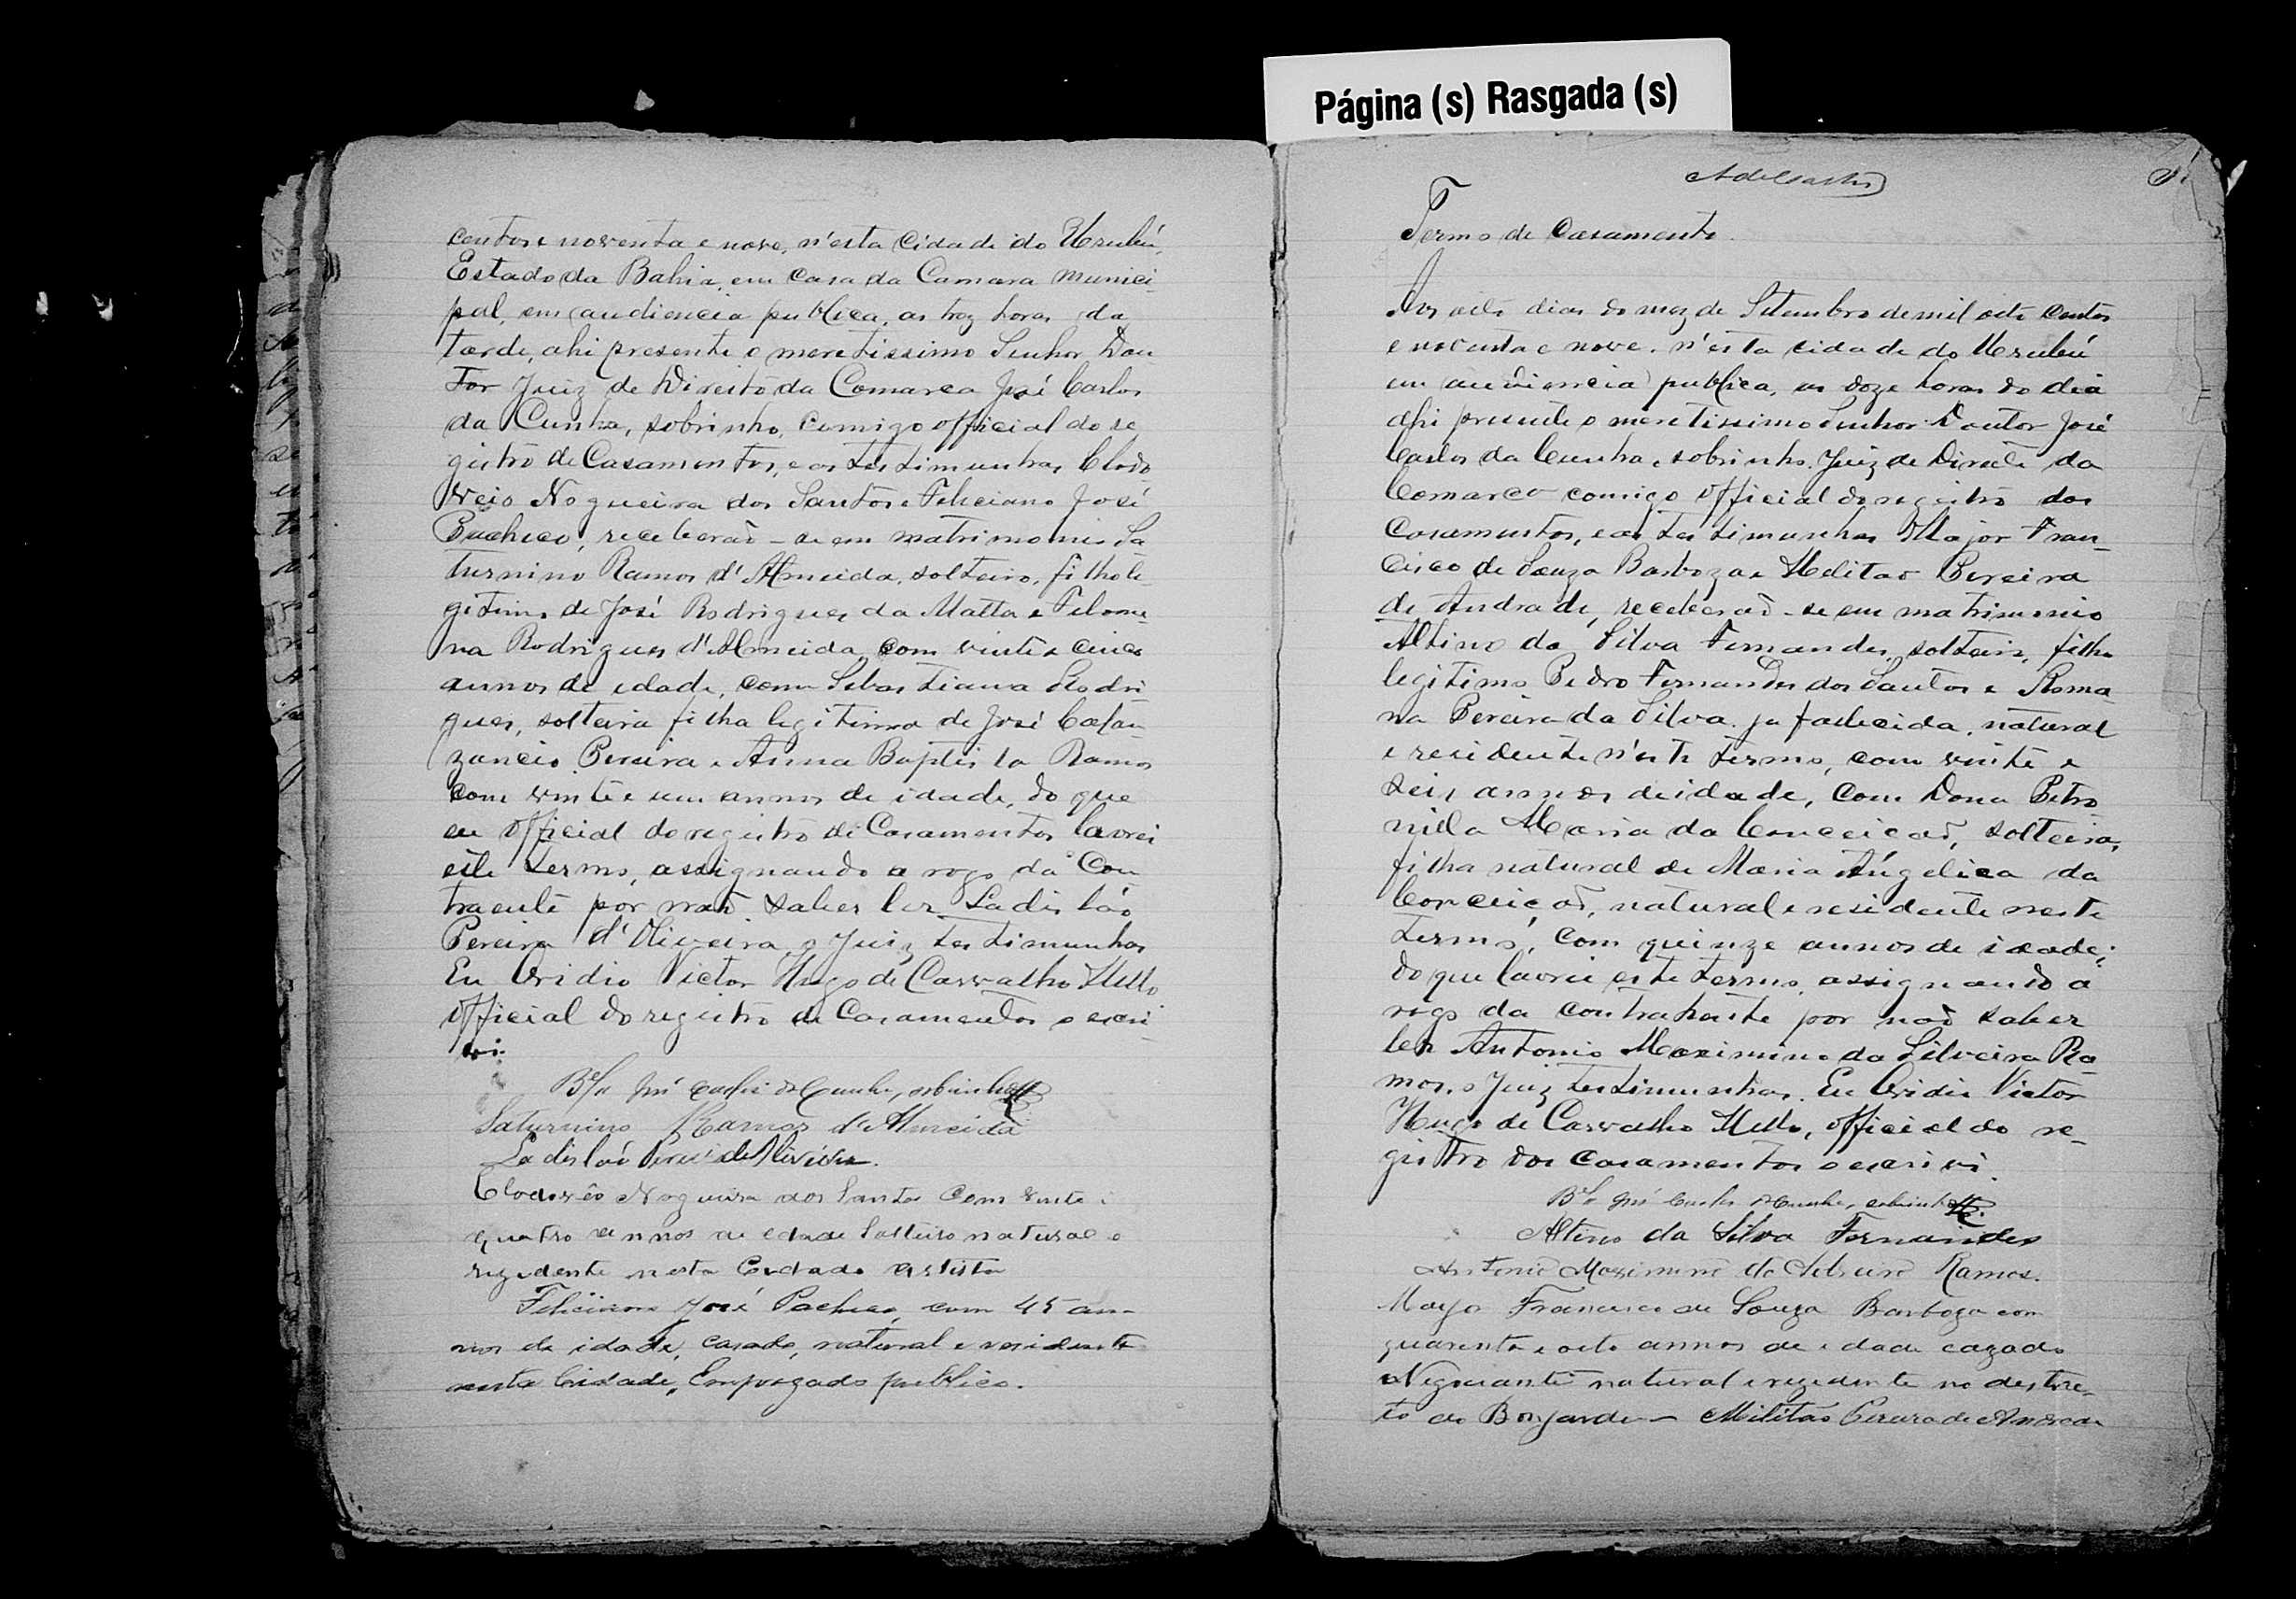 Página (s) Rasgada (s)
centos e noventa e nove, n'esta Cidade do Urubú,
Estado da Bahia, em Casa da Camara Munici-
pal, em audiencia publica, as trez horas da
tarde, ahi presente o meretissimo Senhor Dou
tor Juiz de Direito da Comarca José Carlos
da Cunha, sobrinho, comigo official do re
gistro de Casamentos, e as testimunhas Clodo
veio Nogueira dos Santos e Feliciano José
Pacheco, receberaõ-se em matrimonio Sa
turnino Ramos d'Almeida, solteiro, filho le
gitimo de José Rodrigues da Matta e Filome-
na Rodrigues d'Almeida com vinte e cinco
annos de edade, com Sebastianna Rodri
gues, solteira filha legitima de José Calan
zancio Pereira e Anna Baptista Ramos
com vinte e um annos de idade, do que
eu official do registro de Casamentos lavrei
este termo, assignando a rogo da Con
traente por naõ saber ler Ladisláo
Pereira d'Oliveira, o Juiz, testimunhas
Eu Ovidio Victor Hugo de Carvalho Mello
official do registro de Casamentos o escri
vi.
Bel. José Carlos da Cunha, sobrinho
Saturnino Ramos d'Almeida
Ladisláo Pereira de Oliveira.
Clodovêo Nogueira dos Santos Com vinte e
quatro annos de edade Solteiro natural e
rezidente nesta Cidade artista
Feliciano José Pacheco, com 45 an-
nos de idade, casado, natural e residente
nesta Cidade, Empregado publico.
Termo de Casamento.
Aos oito dias do mez de Setembro de mil oito centos
e noventa e nove, n'esta cidade do Urubú
em audiencia publica, as doze horas do dia
ahi presente o meretissimo Senhor Doutor José
Carlos da Cunha, sobrinho, Juiz de Direito da
Comarca comigo official do registro dos
Casamentos, e as testimunhas Major Fran-
cisco de Souza Barboza e Melitaõ Pereira
de Andrade, receberaõ-se em matrimonio
Altino da Silva Fernandes, solteiro, filho
legitimo Pedro Fernandes dos Santos e Roma
na Pereira da Silva, ja fallecida, natural
e residente n'este termo, com vinte e
seis annos de idade, com Dona Petro
nilla Maria da Conceiçaõ, solteira,
filha natural de Maria Angelica da
Conceiçaõ, natural e residente neste
termo, com quinze annos de idade;
do que lavrei este termo, assignando a
rogo da contrahente por naõ saber
ler Antonio Maximino da Silveira Ra-
mos, o Juiz, testimunhas. Eu Ovidio Victor
Hugo de Carvalho Mello, official do re-
gistro dos casamentos o escrivi.
Bel. José Carlos da Cunha, sobrinho
Altino da Silva Fernandes
Antonio Maximino da Silveira Ramos.
Major Francisco de Souza Barboza com
quarenta e oito annos de edade cazado
Negociante natural e rezidente no destric-
to do Bom Jardim — Militão Pereira de Andrade